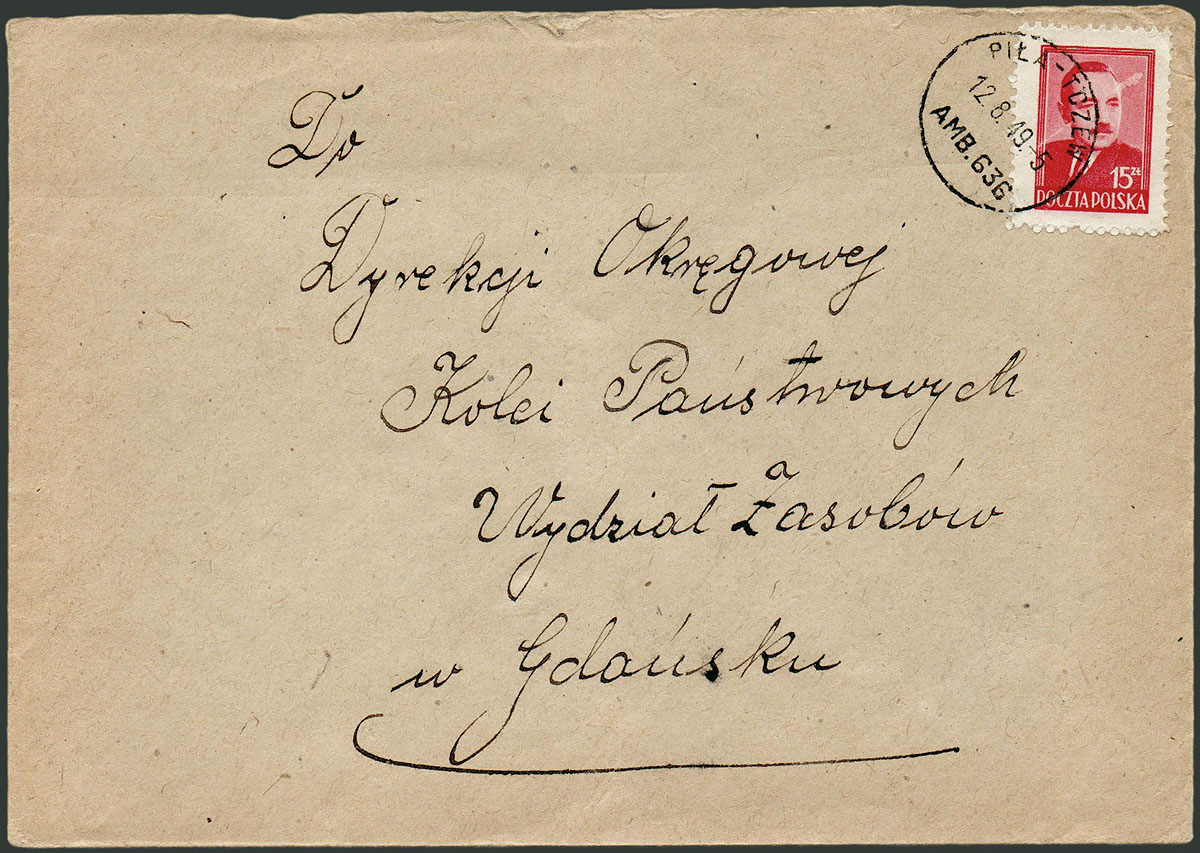 PIŁA - TCZEW
12.8.49.-5
AMB.636
15 zł
POCZTA POLSKA
Do
Dyrekcji Okręgowej
Kolei Państwowych
Wydział Zasobów
w Gdańsku